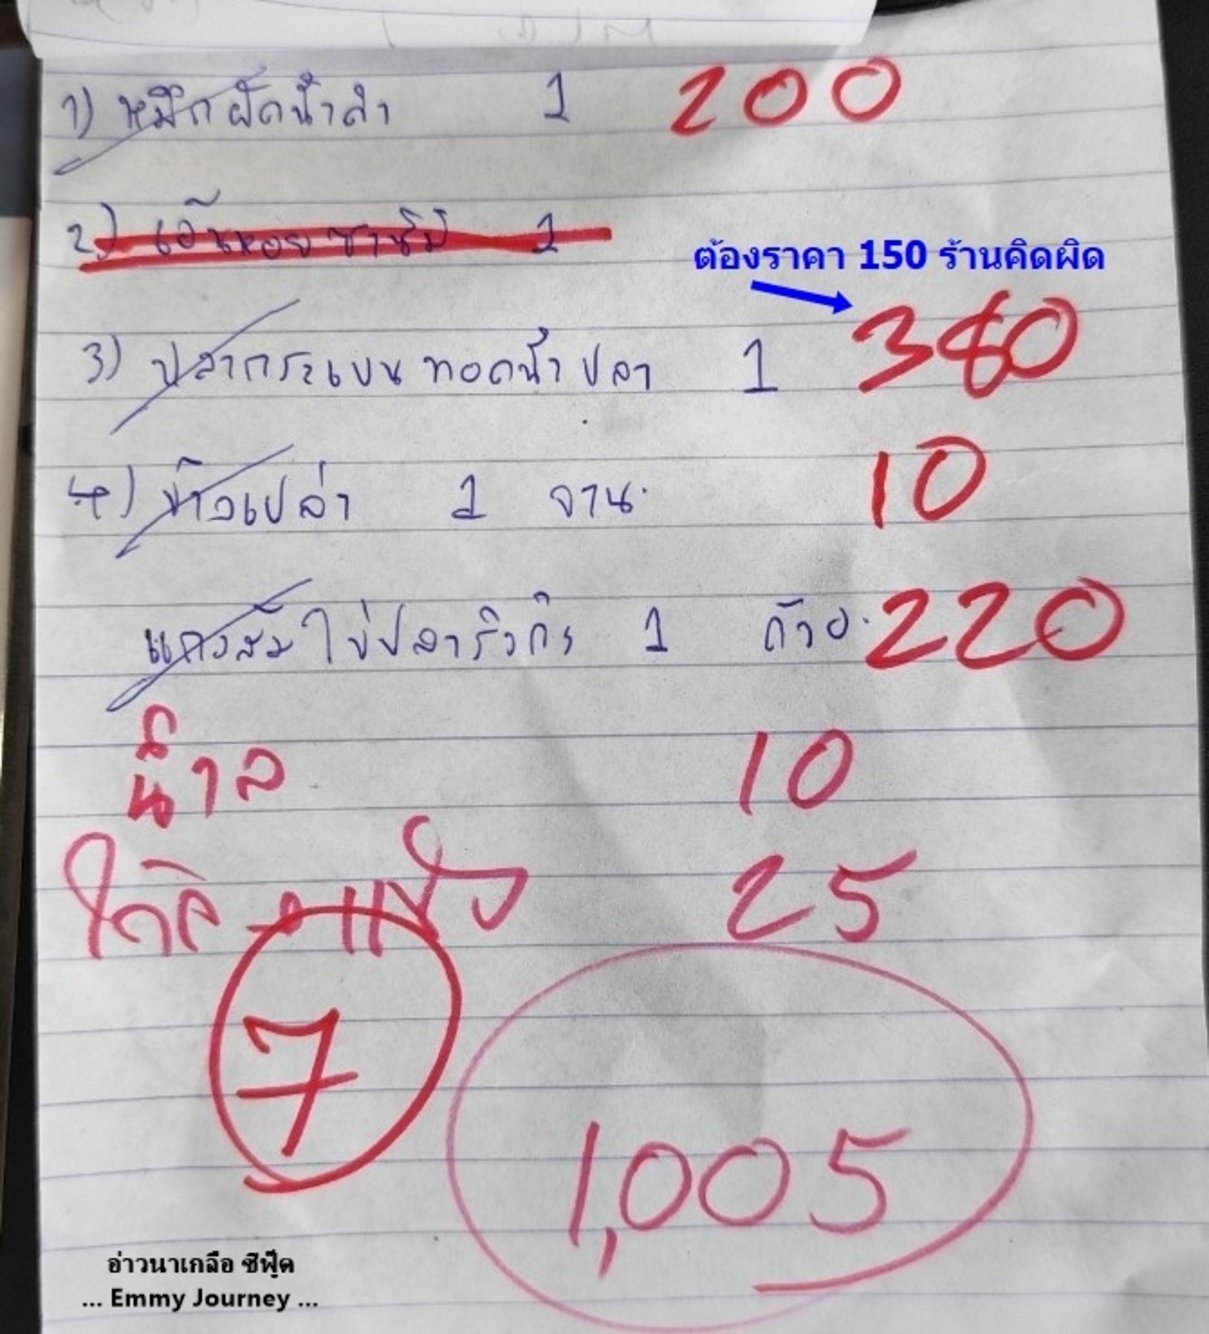 1) หมึกผัดน้ำดำ 1 200
2) เอ็นหอยซาชิมิ 1
ต้องราคา 150 ร้านคิดผิด
3) ปลากระเบนทอดน้ำปลา 1 380
4) ข้าวเปล่า 1 จาน 10
แกงส้มไข่ปลาริวกิว 1 ถ้วย 220
10
25
7
1,005
อ่าวนาเกลือ ซีฟู๊ด
... Emmy Journey ...